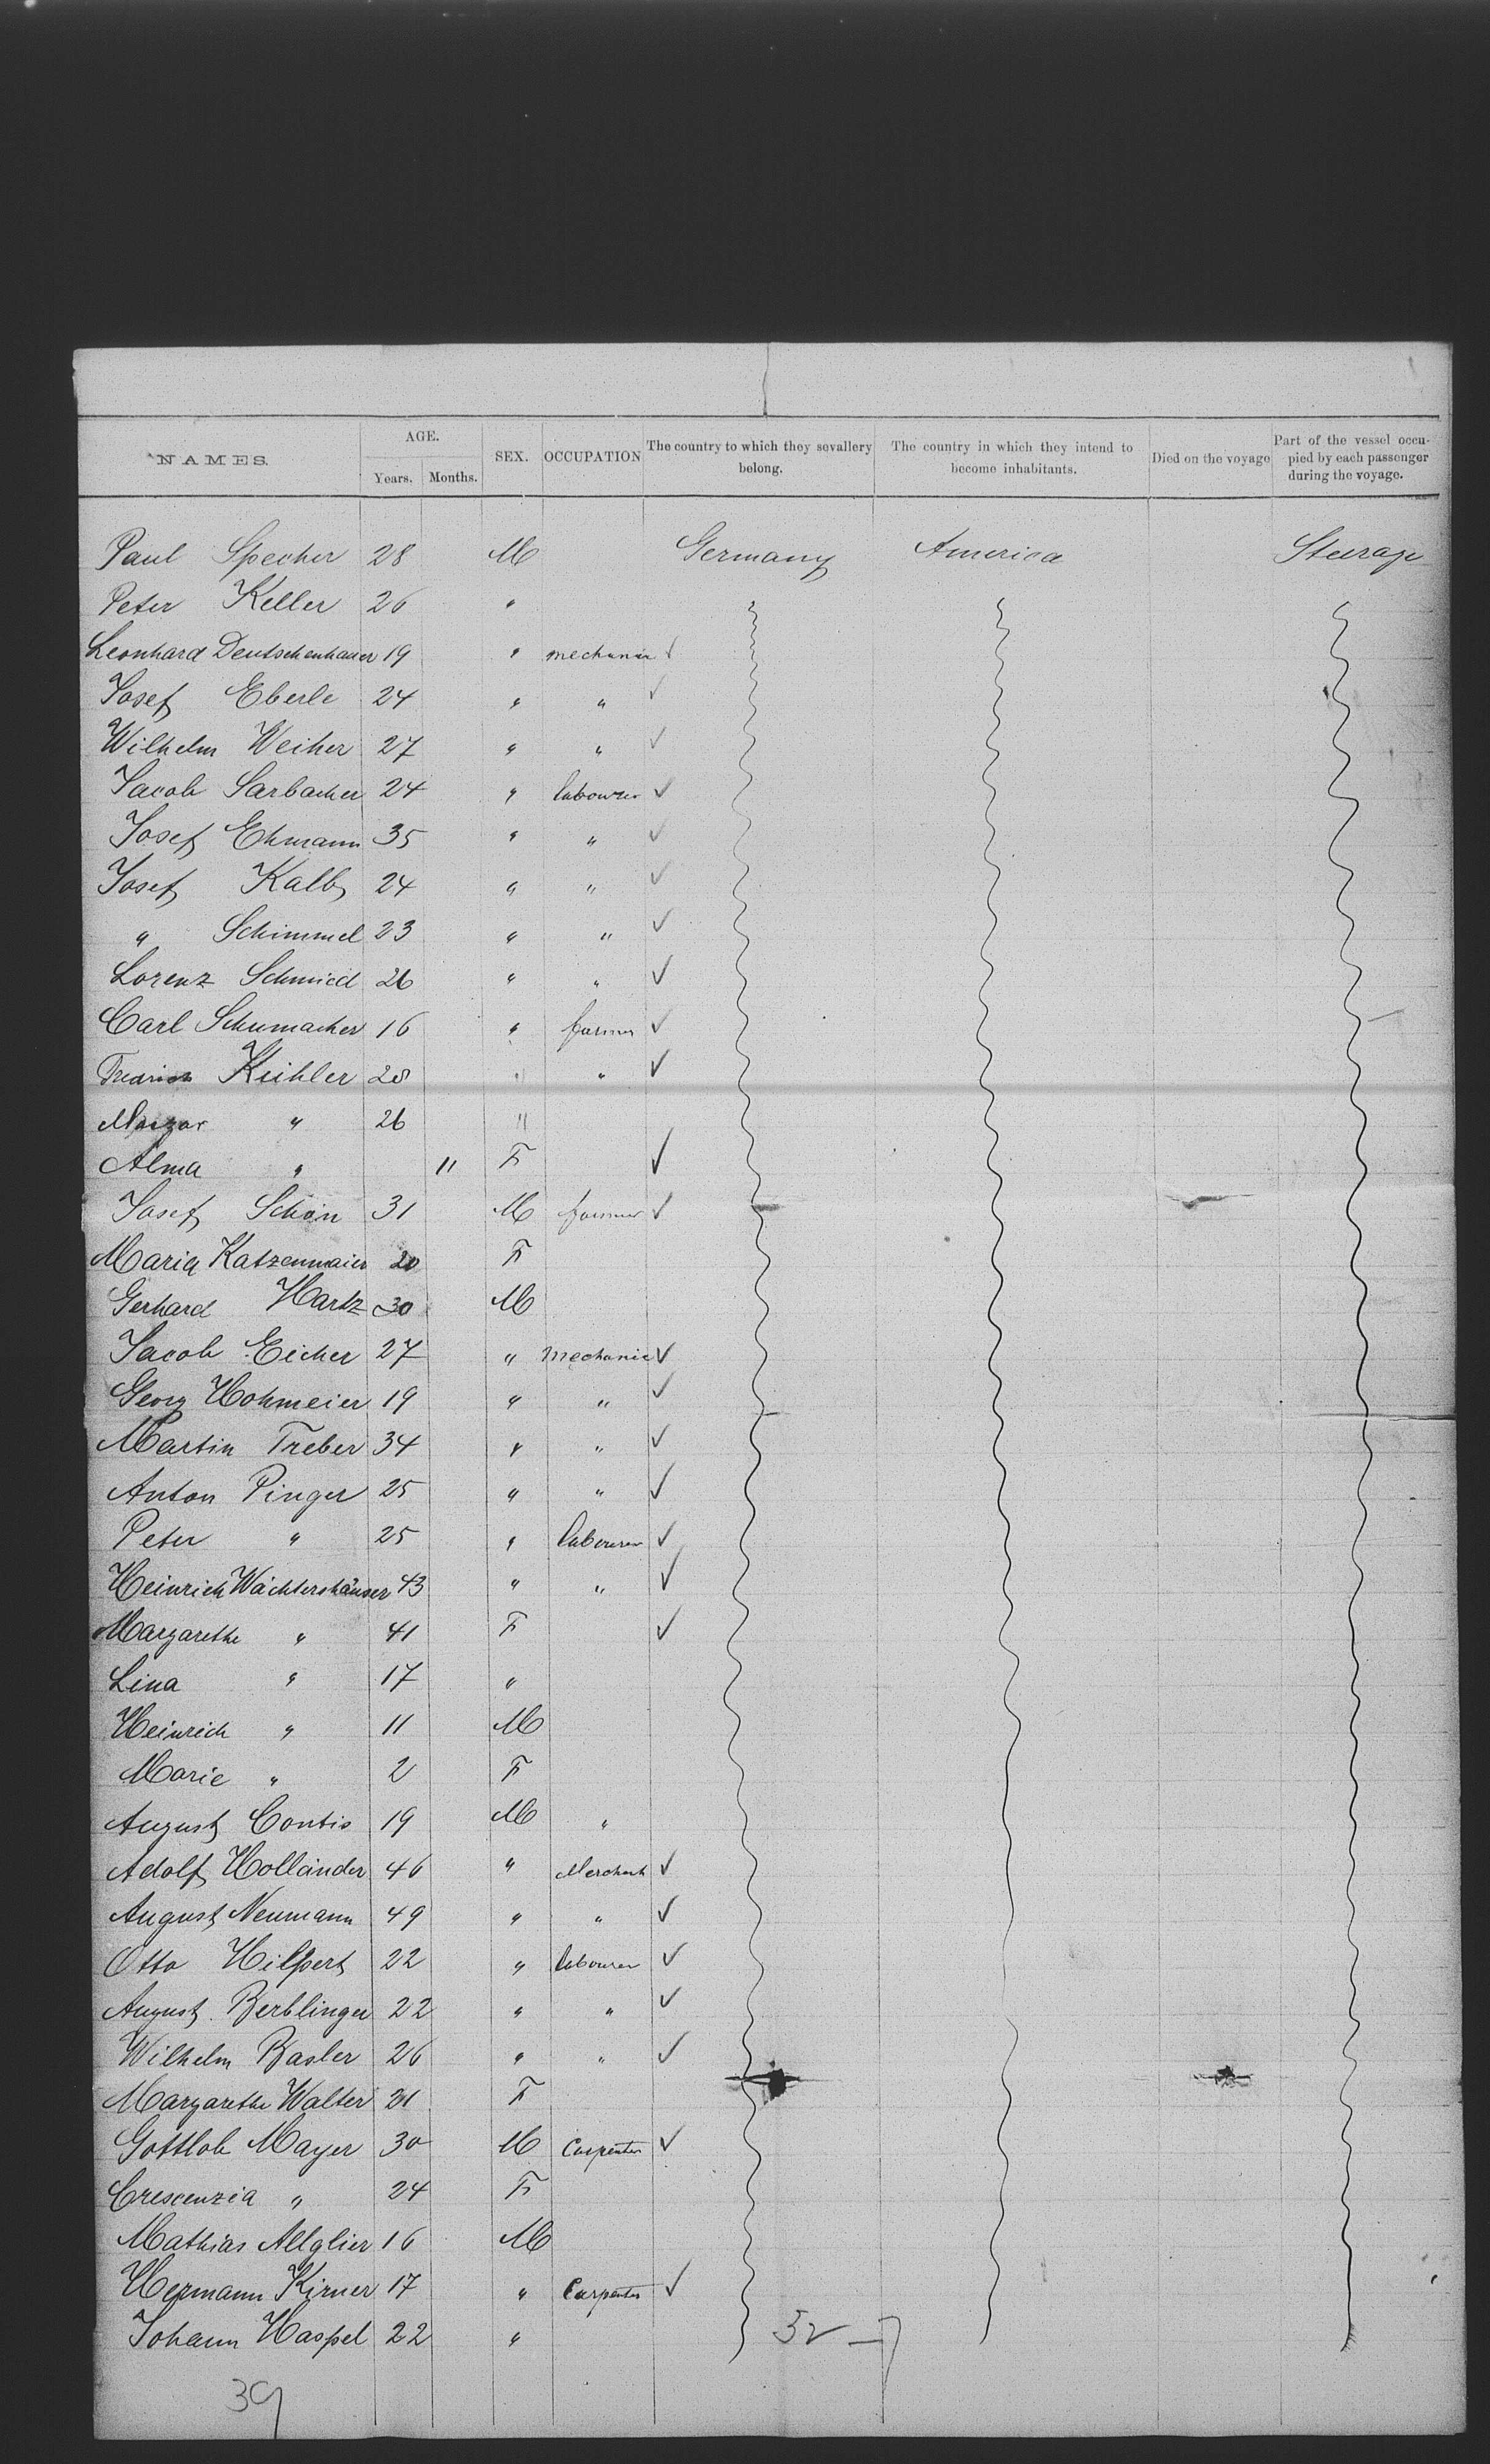 NAMES.
AGE.
Years. Months.
SEX.
OCCUPATION
The country to which they sevallery belong.
The country in which they intend to become inhabitants.
Died on the voyage
Part of the vessel occupied by each passenger during the voyage.
Paul Specher 28 M Germany America Steerage
Peter Keller 26 "
Leonhard Deutschenbauer 19 " mechanic ✓
Josef Eberle 24 " " ✓
Wilhelm Weiher 27 " " ✓
Jacob Sarbacher 24 " labourer ✓
Josef Ehmann 35 " " ✓
Josef Kalb 24 " " ✓
" Schimmel 23 " " ✓
Lorenz Schmied 26 " " ✓
Carl Schumacher 16 " farmer ✓
Kühler 28 " " ✓
" 26 "
Alma " 11 F ✓
Josef Schön 31 M farmer ✓
Maria Katzenmaier 20 F
Gerhard Hartz 30 M
Jacob Eicher 27 " Mechanic ✓
Georg Hohmeier 19 " " ✓
Martin Treber 34 " " ✓
Anton Pinger 25 " " ✓
Peter " 25 " labourer ✓
Heinrich Wächtershäuser 43 " " ✓
Margarethe " 41 F ✓
Lina " 17 "
Heinrich " 11 M
Marie " 2 F
August Contis 19 M "
Adolf Holländer 46 " Merchant ✓
August Neumann 49 " " ✓
Otto Hilpert 22 " labourer ✓
August Berblinger 22 " " ✓
Wilhelm Basler 26 " " ✓
Margarethe Walter 21 F
Gottlob Mayer 30 M Carpenter ✓
Crescenzia " 24 F
Mathias Allglier 16 M
Hermann Kirner 17 " Carpenter ✓
Johann Haspel 22 "
39